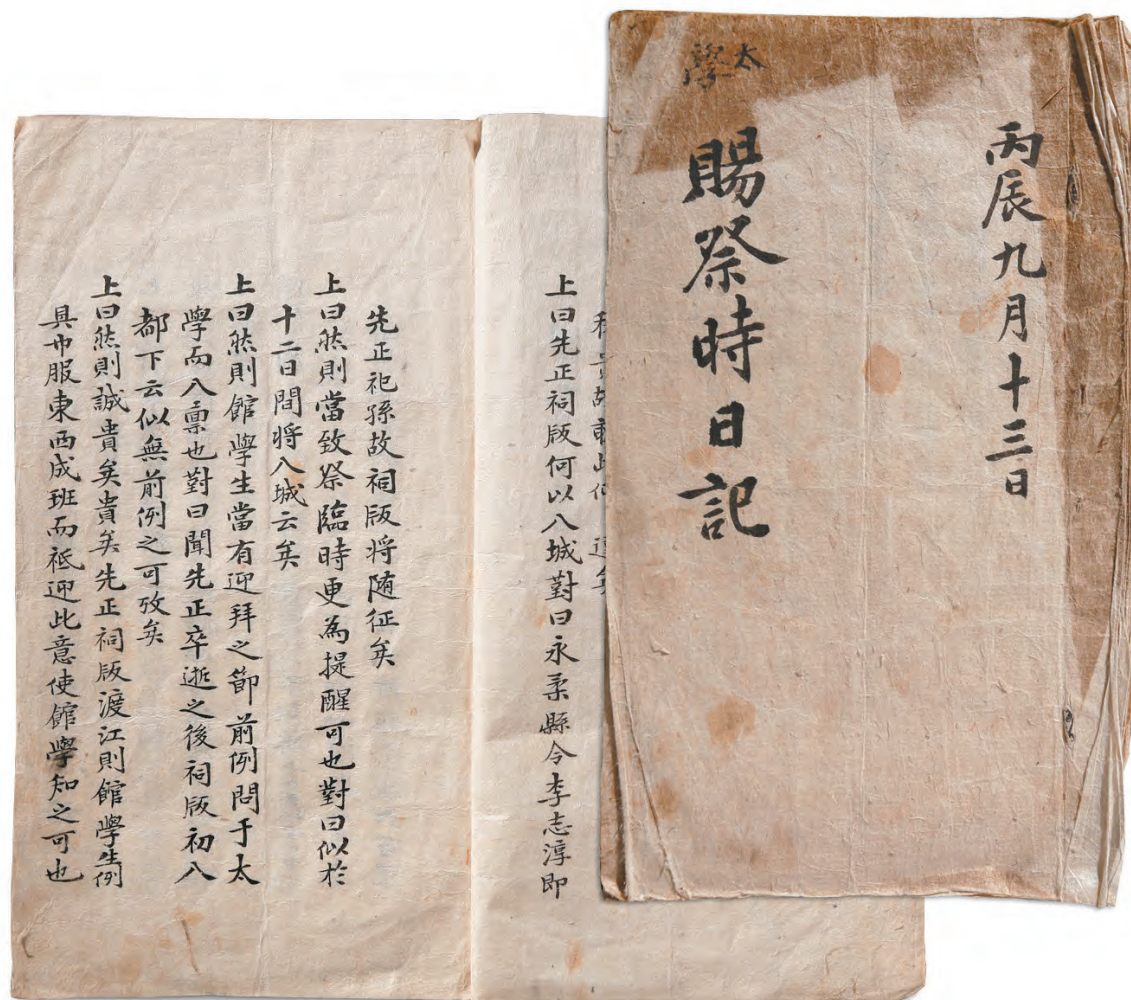 丙辰九月十三日
太學
賜祭時日記
上曰先正祠版何以入城對曰永柔縣令李志淳即
先正祀孫故祠版将随征矣
上曰然則當致祭臨時更為提醒可也對曰似於
十二日間将入城云矣
上曰然則館學生當有迎拜之節前例問于太
學而入稟也對曰聞先正卒逝之後祠版初入
都下云似無前例之可攷矣
上曰然則誠貴矣貴矣先正祠版渡江則館學生例
具巾服東西成班而祗迎此意使館學知之可也